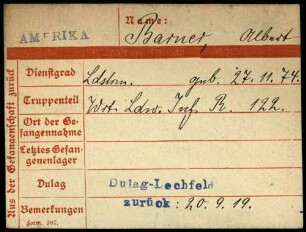 AMERIKA
Name:
Barner, Albert
Aus der Gefangenschaft zurück
Dienstgrad
Ldstm. geb. 27.11.74.
Truppenteil
Wrt. Ldw. Inf. R. 122.
Ort der Ge-
fangennahme
Letztes Gefan-
genenlager
Dulag
Dulag-Lechfeld
Bemerkungen
zurück: 20.9.19.
Form. 507.